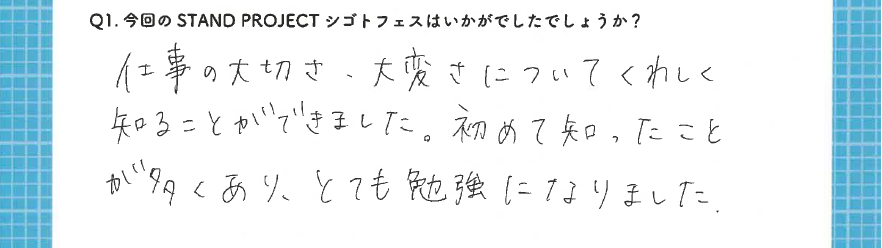 Q1. 今回の STAND PROJECT シゴトフェスはいかがでしたでしょうか?
仕事の大切さ、大変さについてくわしく
知ることができました。初めて知ったこと
が多くあり、とても勉強になりました.